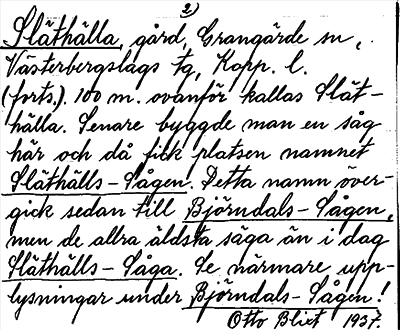 2)
Släthälla, gård, Grangärde sn,
Västerbergslags tg, Kopp. l.
(forts.). 100 m. ovanför kallas Slät-
hälla. Senare byggde man en såg
här och då fick platsen namnet
Släthälls-Sågen. Detta namn över-
gick sedan till Björndals-Sågen,
men de allra äldsta säga än i dag
Släthälls-Såga. Se närmare upp-
lysningar under Björndals-Sågen!
Otto Blixt 1937.